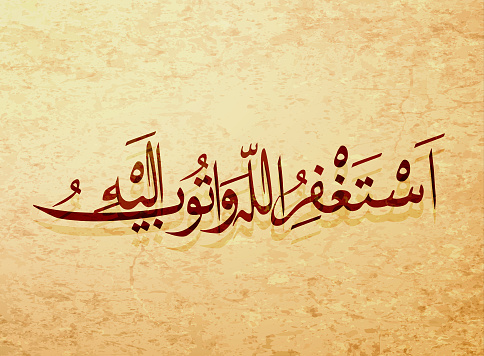 اَسْتَغْفِرُ اللّٰه وَاَتُوبُ اِلَيْهِ